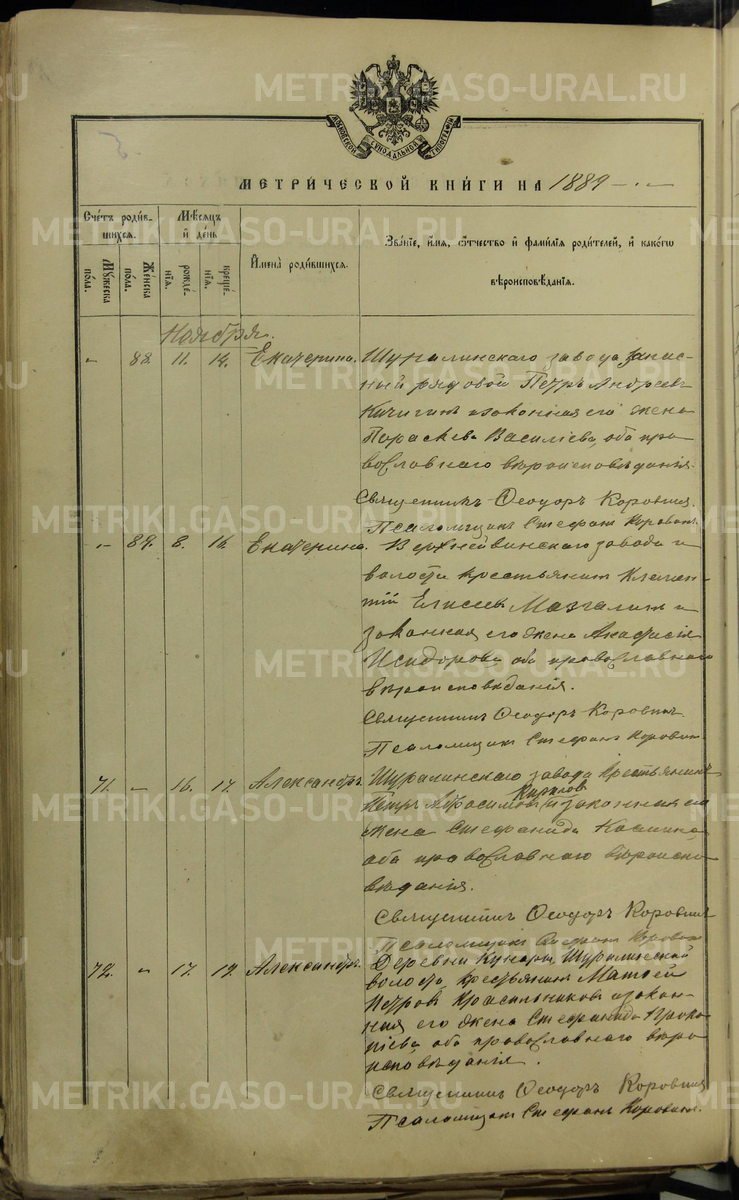 МОСКОВСКОЙ СѴНОДАЛЬНОЙ ТИПОГРАФІИ
МЕТРИ́ЧЕСКОЙ КНИ́ГИ НА 1889
Сче́тъ роди́вшихся.
Му́жеска по́ла.
Же́нска по́ла.
Мѣ́сяцъ и҆ де́нь
рожде́нїѧ.
креще́нїѧ.
И҆мена̀ роди́вшихсѧ.
Зва́нїе, и҆́мѧ, ѻ҆́тчество и҆ фами́лїѧ роди́телей, и҆ како́гѡ
вѣроисповѣ́данїѧ.
Ноября.
- 88. 11. 14. Екатерина. Шуралинскаго завода запас-
ный рядовой Петръ Андреевъ
Кичигинъ и законная его жена
Параскева Василіева, оба пра-
вославнаго вѣроисповѣданія.
Священникъ Ѳеодоръ Коровинъ.
Псаломщикъ Стефанъ Коровинъ.
- 89. 8. 16. Екатерина. Верхнейвинскаго завода и
волости крестьянинъ Климен-
тій Елисеев и
законная его жена Анафасія
Исидорова оба православнаго
вѣроисповѣданія.
Священникъ Ѳеодоръ Коровинъ
Псаломщикъ Стефанъ Коровин
71. - 16. 17. Александръ. Шуралинскаго завода крестьянинъ
Петръ Афрасимовъ Кириловъ и законная его
жена Стефанида Космина
оба православнаго вѣроиспо-
вѣданія.
Священникъ Ѳеодоръ Коровинъ
Псаломщикъ Стефанъ Коровин
72. - 17. 19. Александръ. Деревни Кунары, Шуралинской
волости, крестьянинъ Матѳей
Петровъ Красильниковъ и закон-
ная его жена Стефанида Проко-
піева оба православнаго вѣро
исповѣданія.
Священникъ Ѳеодоръ Коровинъ
Псаломщикъ Стефанъ Коровинъ.
METRIKI.GASO-URAL.RU